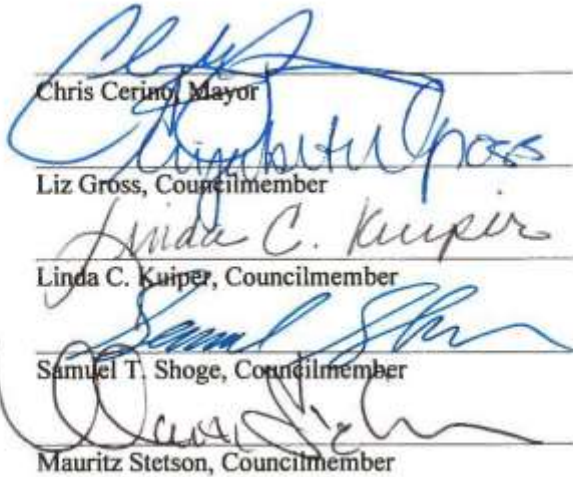 Chris Cerino, Mayor
Elizabeth Gross
Liz Gross, Councilmember
Linda C. Kuiper
Linda C. Kuiper, Councilmember
Samuel T. Shoge, Councilmember
Mauritz Stetson, Councilmember